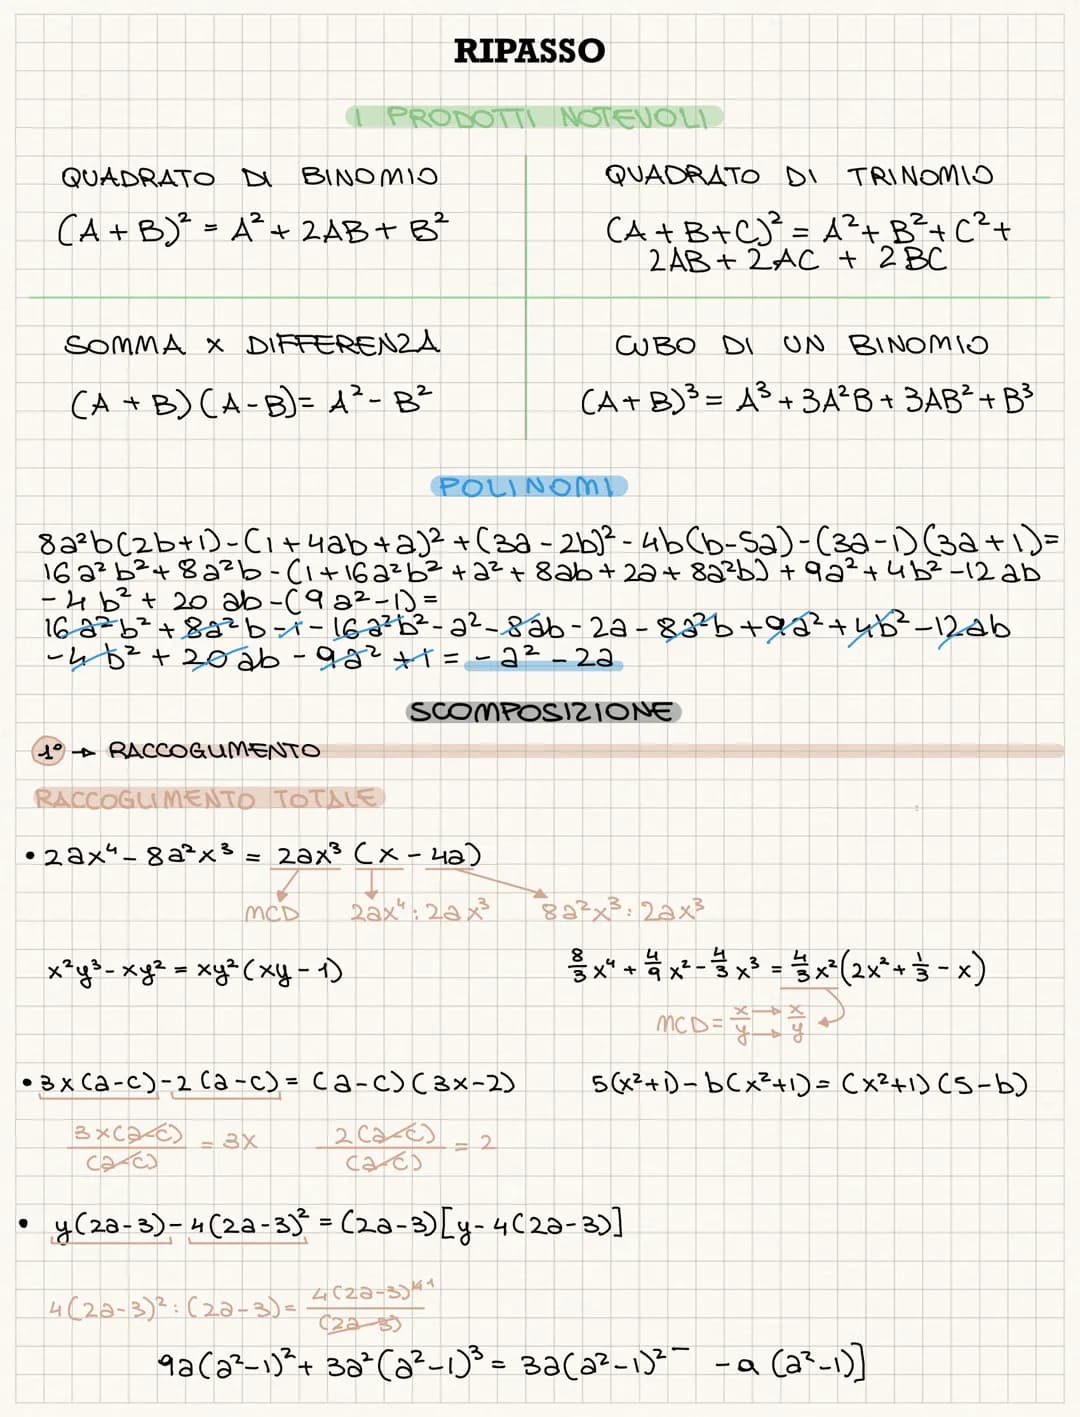 RIPASSO
I PRODOTTI NOTEVOLI
QUADRATO DI BINOMIO
(A + B)² = A² + 2AB + B²
QUADRATO DI TRINOMIO
(A + B + C)² = A² + B² + C² +
2AB + 2AC + 2BC
SOMMA x DIFFERENZA
(A + B)(A - B) = A² - B²
CUBO DI UN BINOMIO
(A + B)³ = A³ + 3A²B + 3AB² + B³
POLINOMI
8a²b(2b+1) - (1 + 4ab + a)² + (3a - 2b)² - 4b(b - 5a) - (3a - 1)(3a + 1) =
16a²b² + 8a²b - (1 + 16a²b² + a² + 8ab + 2a + 8a²b) + 9a² + 4b² - 12ab
- 4b² + 20ab - (9a² - 1) =
16a²b² + 8a²b - 1 - 16a²b² - a² - 8ab - 2a - 8a²b + 9a² + 4b² - 12ab
- 4b² + 20ab - 9a² + 1 = - a² - 2a
SCOMPOSIZIONE
1° → RACCOGLIMENTO
RACCOGLIMENTO TOTALE
• 2ax⁴ - 8a²x³ = 2ax³ (x - 4a)
MCD 2ax⁴ : 2ax³ 8a²x³ : 2ax³
x²y³ - xy² = xy²(xy - 1)
8/3 x⁴ + 4/9 x² - 4/3 x³ = 4/3 x²(2x² + 1/3 - x)
MCD = x/y → x/y
• 3x(a-c) - 2(a-c) = (a-c)(3x-2)
5(x²+1) - b(x²+1) = (x²+1)(5-b)
3x(a-c)/(a-c) = 3x 2(a-c)/(a-c) = 2
• y(2a-3) - 4(2a-3)² = (2a-3)[y - 4(2a-3)]
4(2a-3)² : (2a-3) = 4(2a-3)²¹/(2a-3)
9a(a²-1)² + 3a²(a²-1)³ = 3a(a²-1)² - a (a²-1)]